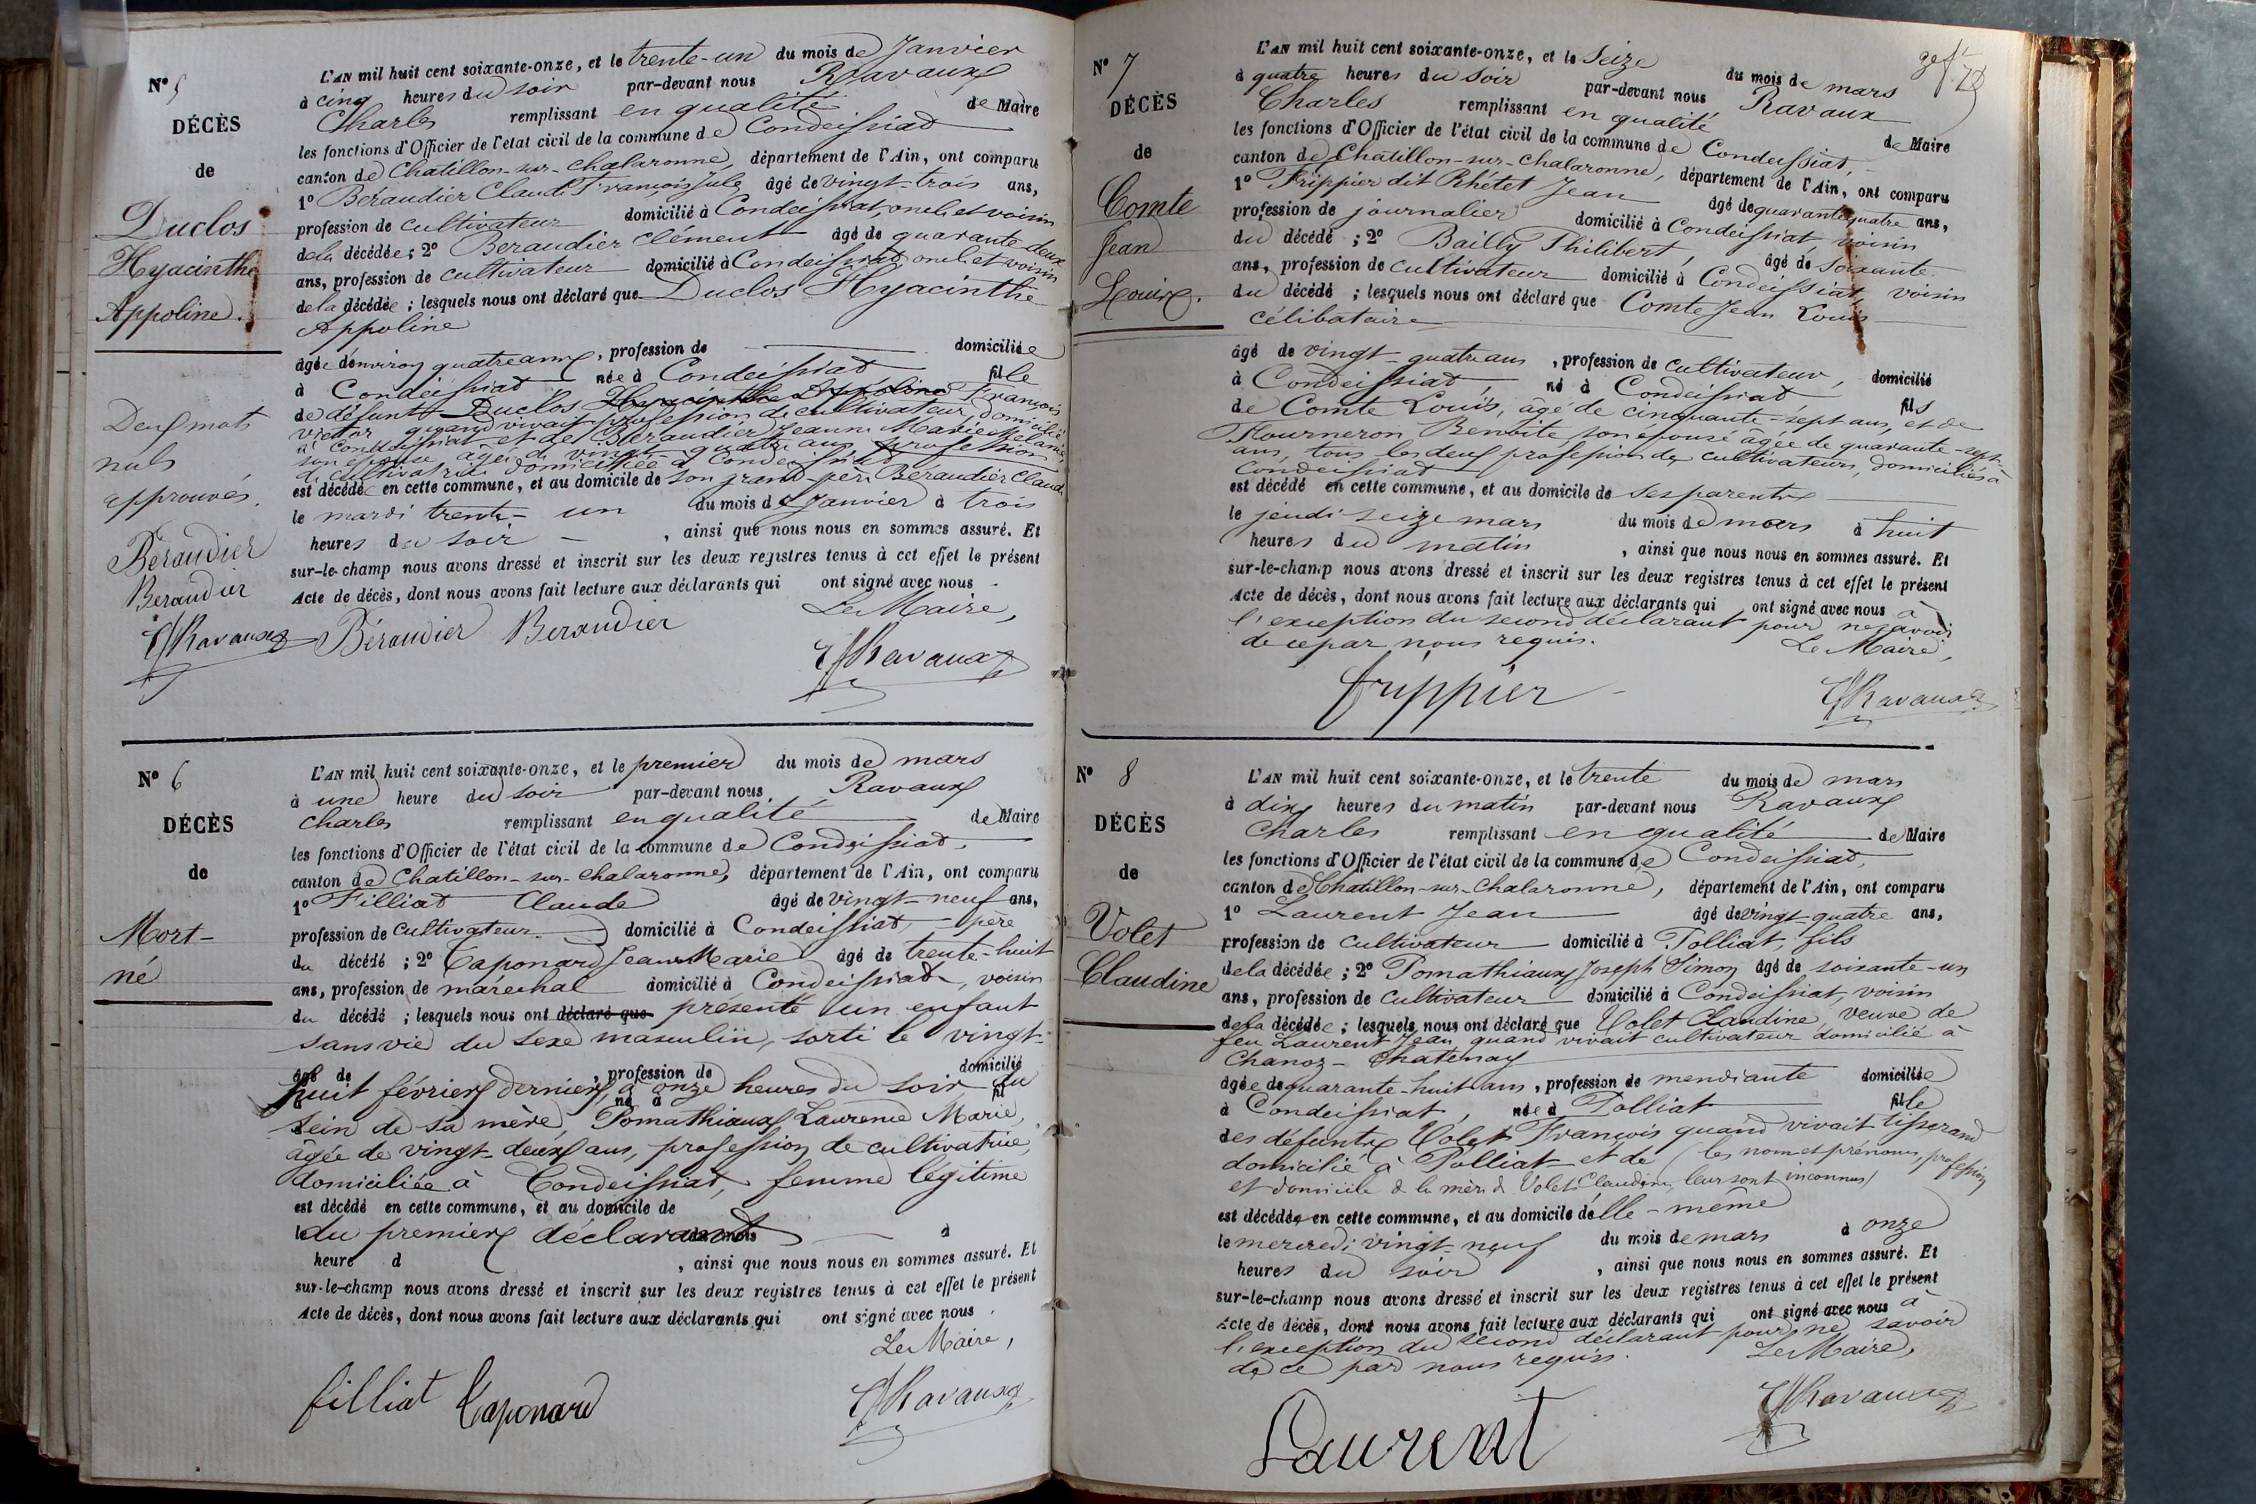 N° 5
DÉCÈS
de
Duclos
Hyacinthe
Appoline.
Deux mots
nuls
approuvés.
Béraudier
Beraudier
Ravaux
L'AN mil huit cent soixante-onze, et le trente-un du mois de Janvier
à cinq heures du soir par-devant nous Ravaux
Charles remplissant en qualité de Maire
les fonctions d'Officier de l'état civil de la commune de Condeissiat
canton de Chatillon-sur-Chalaronne, département de l'Ain, ont comparu
1° Béraudier Claude François Jule âgé de vingt-trois ans,
profession de cultivateur domicilié à Condeissiat, oncle et voisin
de la décédée; 2° Beraudier Clément âgé de quarante-deux
ans, profession de cultivateur domicilié à Condeissiat, oncle et voisin
de la décédée; lesquels nous ont déclaré que Duclos Hyacinthe
Appoline
âgée d'environ quatre ans, profession de domiciliée
à Condeissiat née à Condeissiat fille
de défunt Duclos Hyacinthe Appoline François
Victor quand vivait profession de cultivateur, domicilié
à Condeissiat et de Béraudier Jeanne Marie Mélanie
son épouse âgée de vingt-quatre ans profession
de cultivatrice domiciliée à Condeissiat
est décédée en cette commune, et au domicile de son grand-père Béraudier Claude
le mardi trente-un du mois de Janvier à trois
heures du soir, ainsi que nous nous en sommes assuré. Et
sur-le-champ nous avons dressé et inscrit sur les deux registres tenus à cet effet le présent
Acte de décès, dont nous avons fait lecture aux déclarants qui ont signé avec nous
Le Maire,
Béraudier Beraudier Ravaux
N° 6
DÉCÈS
de
Mort-
né
L'AN mil huit cent soixante-onze, et le premier du mois de mars
à une heure du soir par-devant nous Ravaux
Charles remplissant en qualité de Maire
les fonctions d'Officier de l'état civil de la commune de Condeissiat,
canton de Chatillon-sur-Chalaronne, département de l'Ain, ont comparu
1° Filliat Claude âgé de vingt-neuf ans,
profession de cultivateur domicilié à Condeissiat, père
du décédé; 2° Caponard Jean Marie âgé de trente-huit
ans, profession de marechal domicilié à Condeissiat, voisin
du décédé; lesquels nous ont déclaré que présenté un enfant
sans vie du sexe masculin, sorti le vingt-
âgé de , profession de domicilié
huit février dernier, à onze heures du soir du
né à fil
sein de sa mère Pomathiaux Laurence Marie,
âgée de vingt-deux ans, profession de cultivatrice,
domiciliée à Condeissiat, femme légitime
est décédé en cette commune, et au domicile de
le du premier déclarant du mois à
heure d , ainsi que nous nous en sommes assuré. Et
sur-le-champ nous avons dressé et inscrit sur les deux registres tenus à cet effet le présent
Acte de décès, dont nous avons fait lecture aux déclarants qui ont signé avec nous
Le Maire,
filliat Caponard Ravaux
N° 7
DÉCÈS
de
Comte
Jean
Louis.
L'AN mil huit cent soixante-onze, et le seize du mois de mars
à quatre heures du soir par-devant nous Ravaux
Charles remplissant en qualité de Maire
les fonctions d'Officier de l'état civil de la commune de Condeissiat,
canton de Chatillon-sur-Chalaronne, département de l'Ain, ont comparu
1° Frippier dit Rhétet Jean âgé de quarante quatre ans,
profession de journalier domicilié à Condeissiat, voisin
du décédé; 2° Bailly Philibert, âgé de soixante
ans, profession de cultivateur domicilié à Condeissiat, voisin
du décédé; lesquels nous ont déclaré que Comte Jean Louis
célibataire
âgé de vingt-quatre ans, profession de cultivateur, domicilié
à Condeissiat, né à Condeissiat fils
de Comte Louis, âgé de cinquante-sept ans, et de
Flourneron Benoite son épouse âgée de quarante-sept
ans, tous les deux profession de cultivateurs, domiciliés à
Condeissiat
est décédé en cette commune, et au domicile de ses parents
le jeudi seize mars du mois de mars à huit
heures du matin, ainsi que nous nous en sommes assuré. Et
sur-le-champ nous avons dressé et inscrit sur les deux registres tenus à cet effet le présent
Acte de décès, dont nous avons fait lecture aux déclarants qui ont signé avec nous à
l'exception du second déclarant pour ne savoir
de ce par nous requis.
Le Maire,
frippier Ravaux
N° 8
DÉCÈS
de
Volet
Claudine
L'AN mil huit cent soixante-onze, et le trente du mois de mars
à dix heures du matin par-devant nous Ravaux
Charles remplissant en qualité de Maire
les fonctions d'Officier de l'état civil de la commune de Condeissiat,
canton de Chatillon-sur-Chalaronne, département de l'Ain, ont comparu
1° Laurent Jean âgé de vingt-quatre ans,
profession de cultivateur domicilié à Polliat, fils
de la décédée; 2° Pomathiaux Joseph Simon âgé de soixante-un
ans, profession de cultivateur domicilié à Condeissiat, voisin
de la décédée; lesquels nous ont déclaré que Volet Claudine, veuve de
feu Laurent Jean quand vivait cultivateur domicilié à
Chanoz-Chatenay
âgée de quarante-huit ans, profession de mendiante domiciliée
à Condeissiat, née à Polliat fille
des défunts Volet François quand vivait tisserand
domicilié à Polliat et de (les nom et prénoms, profession
et domicile de la mère de Volet Claudine, leur sont inconnus)
est décédée en cette commune, et au domicile d'elle-même
le mercredi vingt-neuf du mois de mars à onze
heures du soir, ainsi que nous nous en sommes assuré. Et
sur-le-champ nous avons dressé et inscrit sur les deux registres tenus à cet effet le présent
Acte de décès, dont nous avons fait lecture aux déclarants qui ont signé avec nous à
l'exception du second déclarant pour ne savoir
de ce par nous requis.
Le Maire,
Laurent Ravaux